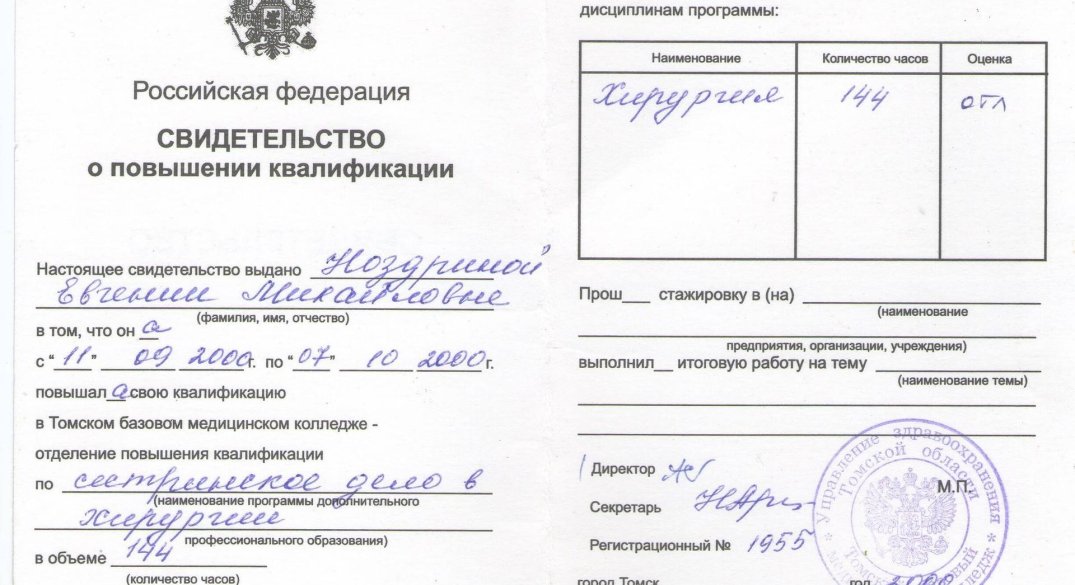 Российская федерация
СВИДЕТЕЛЬСТВО
о повышении квалификации
Настоящее свидетельство выдано Ноздриной
Евгении Михайловне
(фамилия, имя, отчество)
в том, что он а
с "11" 09 2000г. по "07" 10 2000г.
повышал а свою квалификацию
в Томском базовом медицинском колледже -
отделение повышения квалификации
по сестринское дело в
(наименование программы дополнительного
хирургии
профессионального образования)
в объеме 144
(количество часов)
дисциплинам программы:
Наименование Количество часов Оценка
Хирургия 144 отл
Прош___ стажировку в (на)
(наименование
предприятия, организации, учреждения)
выполнил__ итоговую работу на тему
(наименование темы)
Директор
Секретарь
М.П.
Регистрационный № 1955
город Томск год 2000
Управление здравоохранения
Томской области